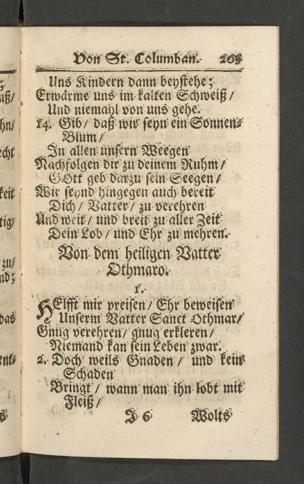 Von St. Columban. 203
Uns Kindern dann beystehe;
Erwärme uns im kalten Schweiß /
Und niemahl von uns gehe.
14. Gib / daß wir seyn ein Sonnen-
Blum /
In allen unsern Weegen
Nachfolgen dir zu deinem Ruhm /
GOtt geb darzu sein Seegen /
Wir seynd hingegen auch bereit
Dich / Vatter / zu verehren
Und weit / und breit zu aller Zeit
Dein Lob / und Ehr zu mehren.
Von dem heiligen Vatter
Othmaro.
1.
HElfft mir preisen / Ehr beweisen
Unserm Vatter Sanct Othmar /
Gnug verehren / gnug erkleren /
Niemand kan sein Leben zwar.
2. Doch weils Gnaden / und kein
Schaden
Bringt / wann man ihn lobt mit
Fleiß /
J 6 Wolts